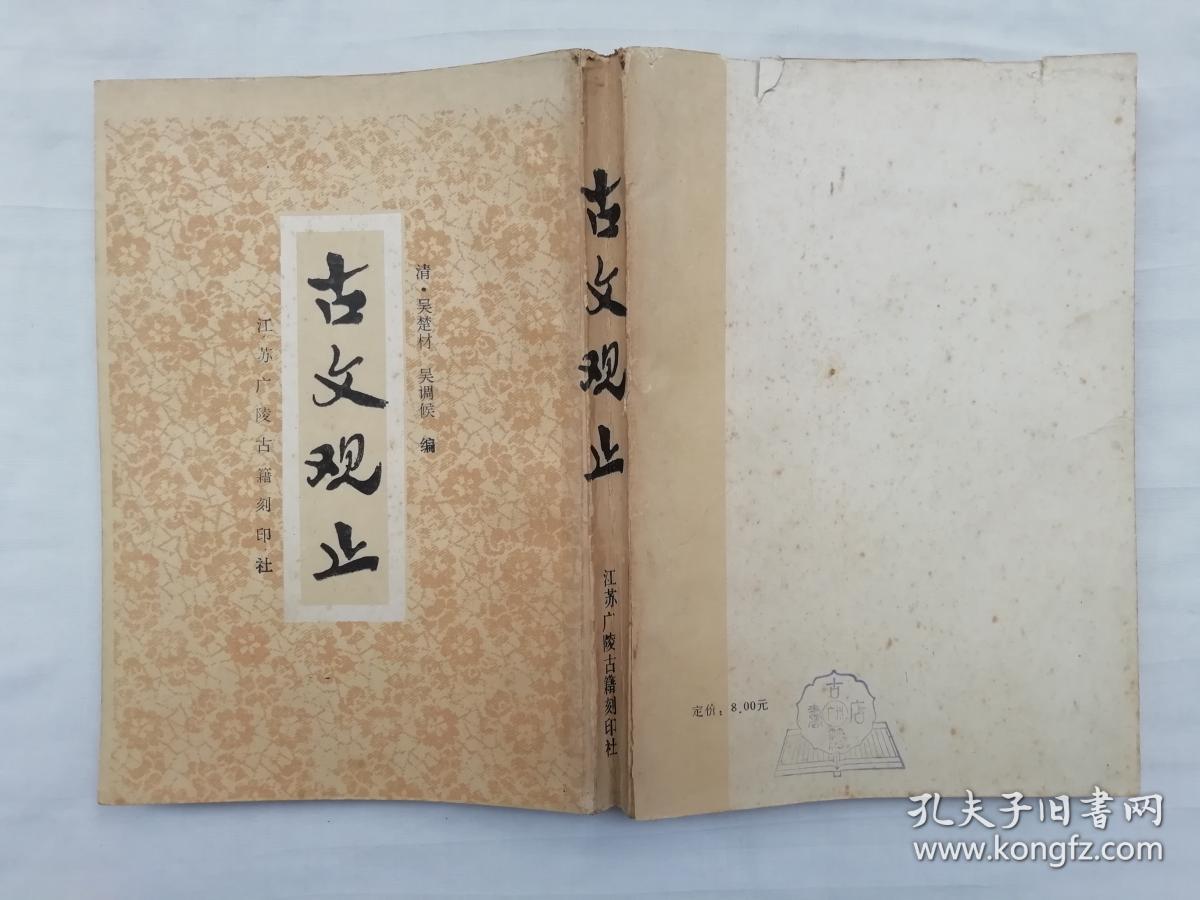 古文观止
清·吴楚材 吴调候 编
江苏广陵古籍刻印社
古文观止
江苏广陵古籍刻印社
定价：8.00元
古
店
孔夫子旧书网
www.kongfz.com